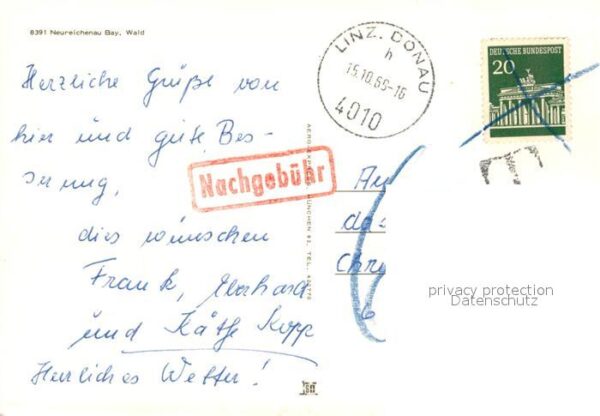 8391 Neureichenau Bay. Wald
Herzliche Grüße von
hier und gute Bes-
serung,
dies wünschen
Frank, Eberhard
und Käthe Kopp
Herrliches Wetter!
LINZ, DONAU
h
15.10.69-16
4010
DEUTSCHE BUNDESPOST
20
Nachgebühr
MÜNCHEN
TEL.
An
da
Chr
6
privacy protection
Datenschutz